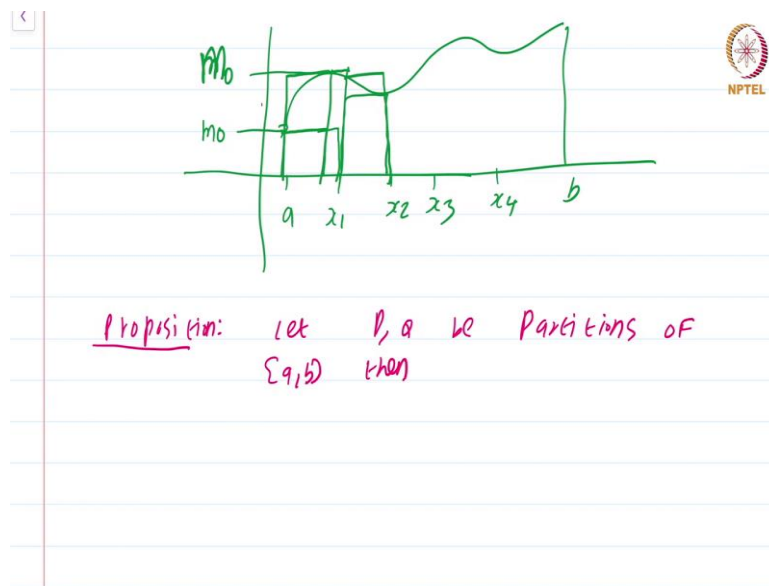 M₀
NPTEL
m₀
a x₁ x₂ x₃ x₄ b
Proposition: Let P, Q be Partitions of
[a,b] then